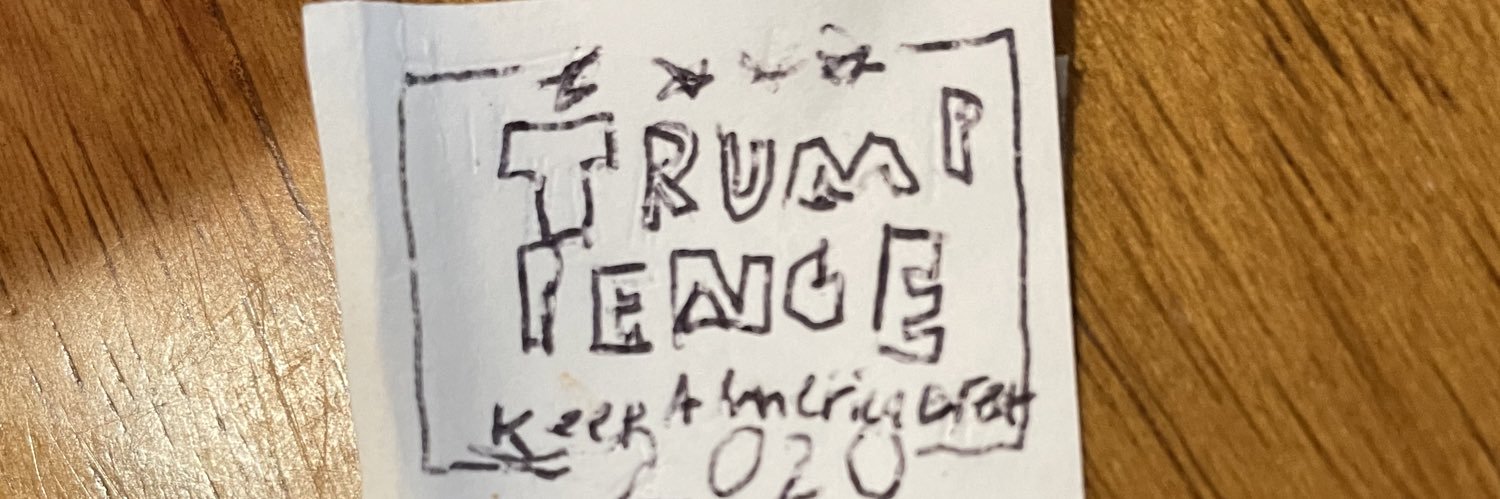 TRUMP
PENCE
Keep America Great
2020